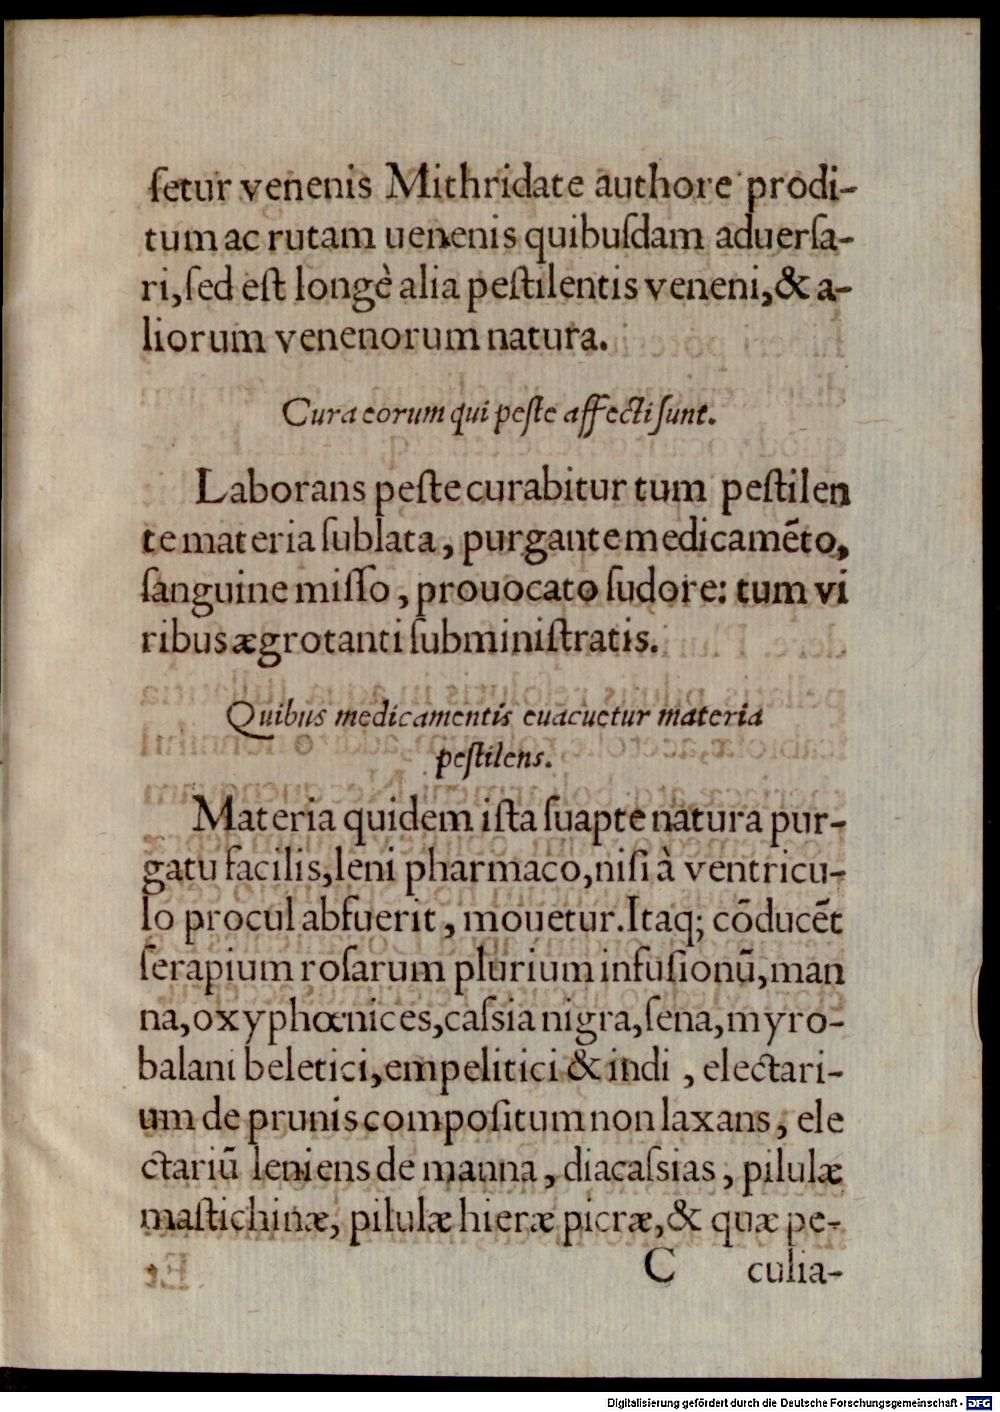 ſetur venenis Mithridate authore prodi-
tum ac rutam uenenis quibuſdam aduerſa-
ri, ſed eſt longè alia peſtilentis veneni, & a-
liorum venenorum natura.
Cura eorum qui peſte affecti ſunt.
Laborans peſte curabitur tum peſtilen
te materia ſublata, purgante medicamẽto,
ſanguine miſſo, prouocato ſudore: tum vi
ribus ægrotanti ſubminiſtratis.
Quibus medicamentis euacuetur materia
peſtilens.
Materia quidem iſta ſuapte natura pur-
gatu facilis, leni pharmaco, niſi à ventricu-
lo procul abfuerit, mouetur. Itaq; cõducẽt
ſerapium roſarum plurium infuſionũ, man
na, oxyphœnices, caſsia nigra, ſena, myro-
balani beletici, empelitici & indi, electari-
um de prunis compoſitum non laxans, ele
ctariũ leniens de manna, diacaſsias, pilulæ
maſtichinæ, pilulæ hieræ picræ, & quæ pe-
C culia-
Digitalisierung gefördert durch die Deutsche Forschungsgemeinschaft - DFG